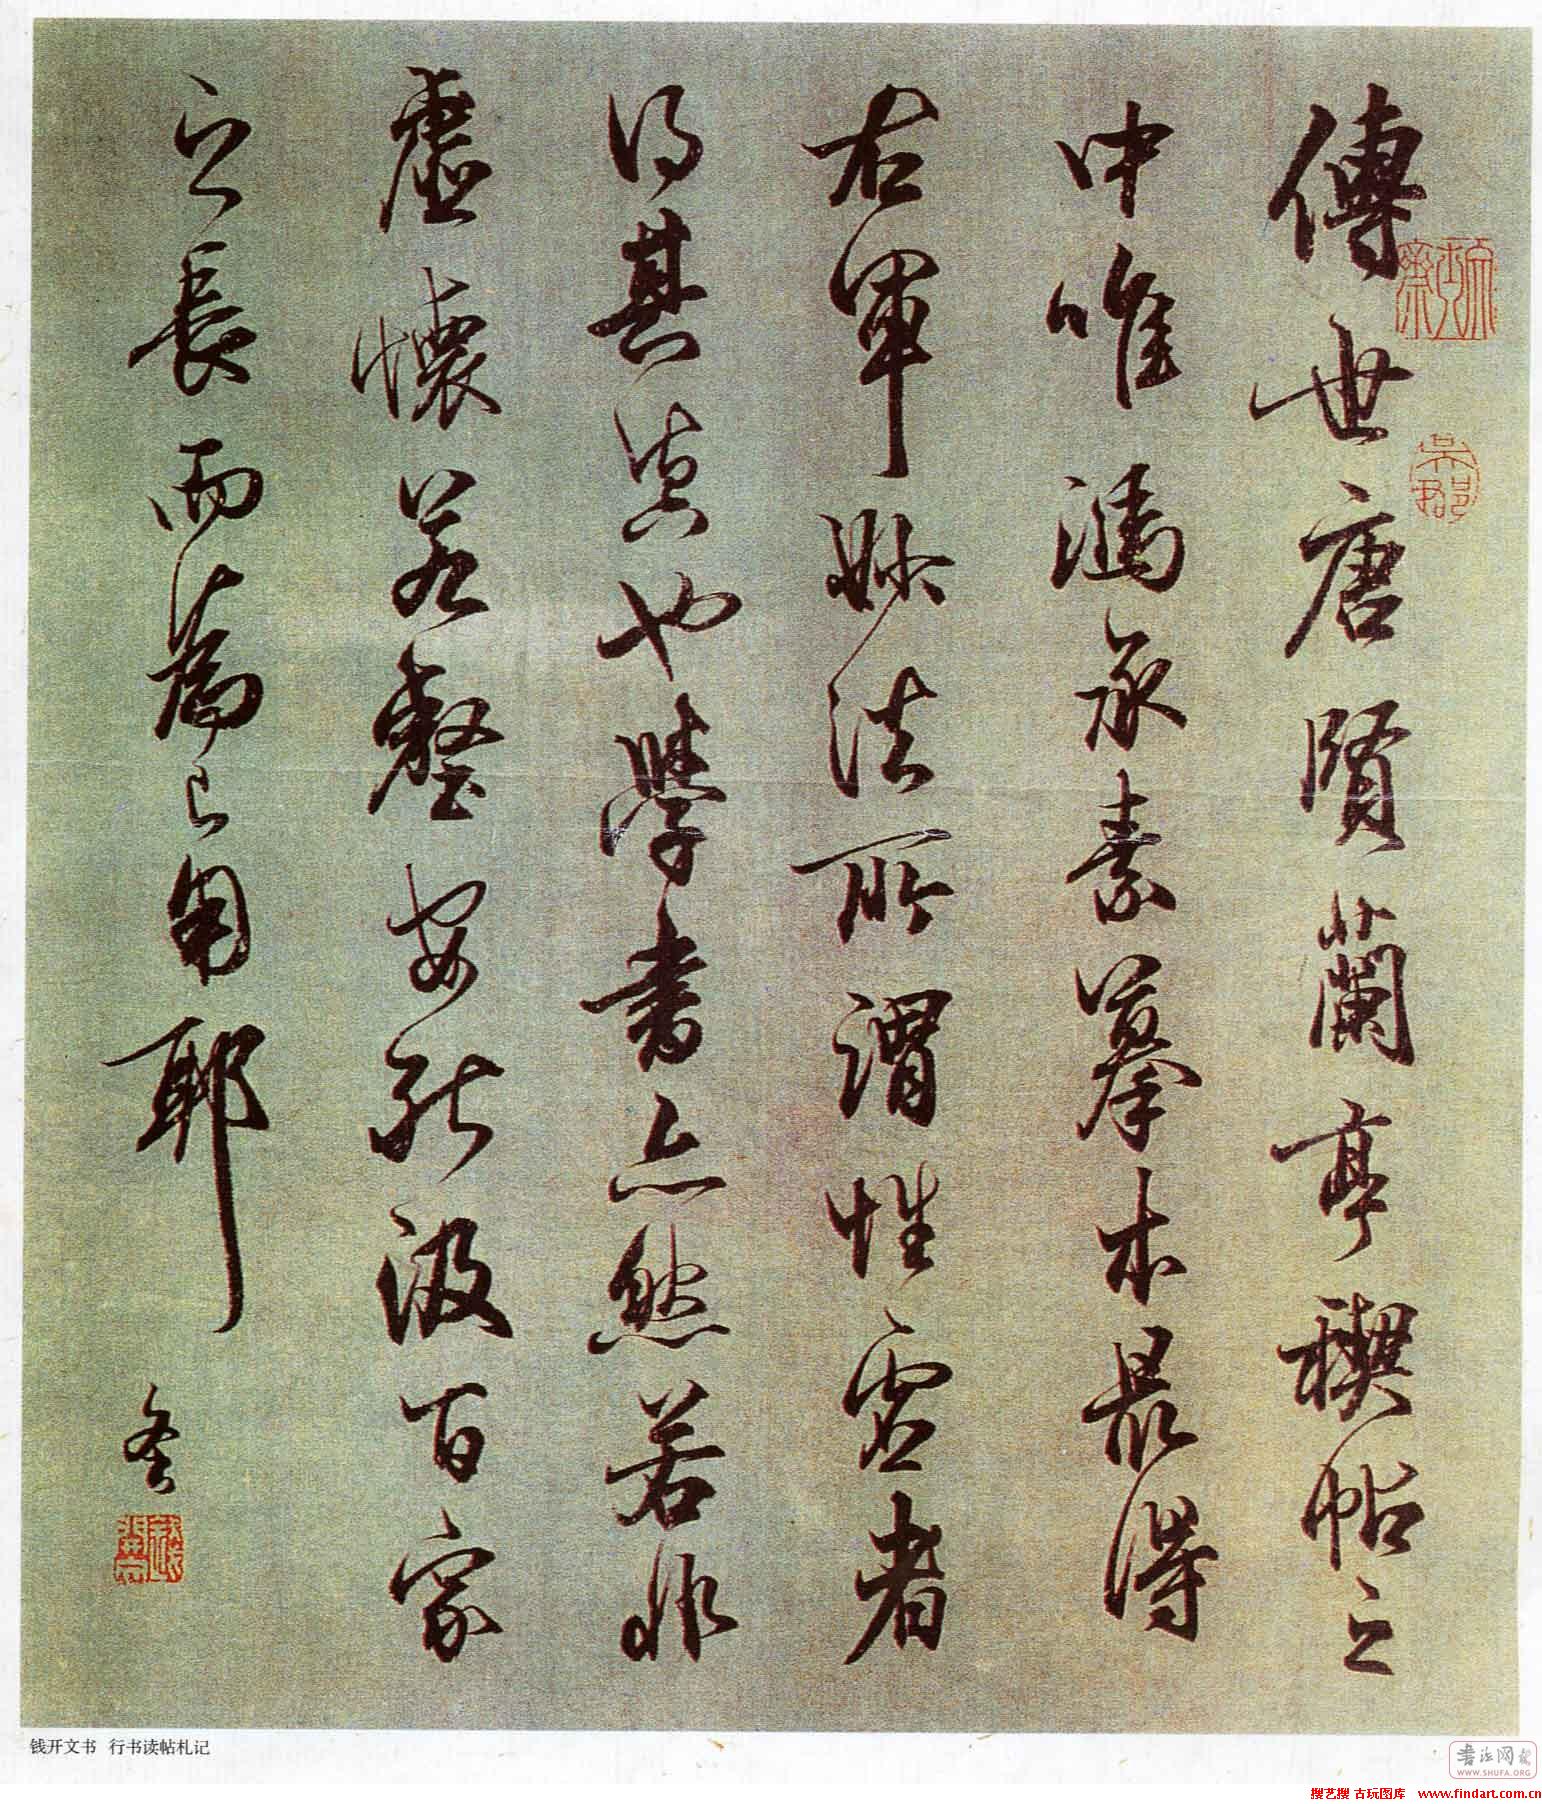 傳世唐賢蘭亭禊帖之
中唯馮承素摹本最得
右軍妙法所謂性虛者
得其真也學書亦然若非
虛懷若壑安能汲百家
之長而為己用耶
吳郡
钱开文书 行书读帖札记
书法网
WWW.SHUFA.ORG
搜艺搜 古玩图库 www.findart.com.cn